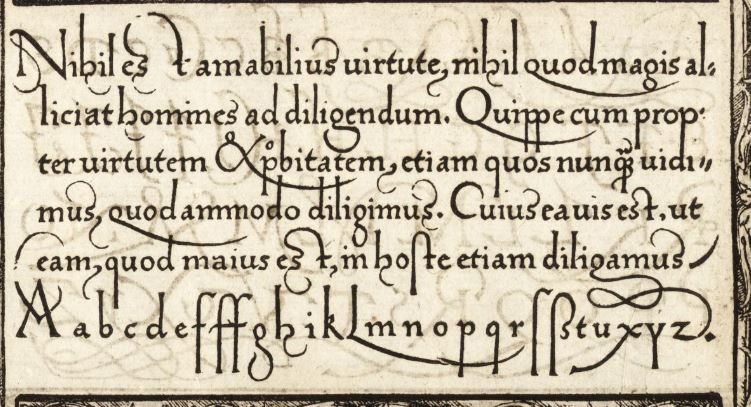 Nihil est amabilius virtute, nihil quod magis al-
liciat homines ad diligendum. Quippe cum prop-
ter virtutem & ꝓbitatem, etiam quos nunꝙ̃ vidi-
mus, quodammodo diligimus. Cuius ea vis est, ut
eam, quod maius est, in hoſte etiam diligamus
A a b c d e f ff g h i k l m n o p q r ſ ſ ß t u x y z.